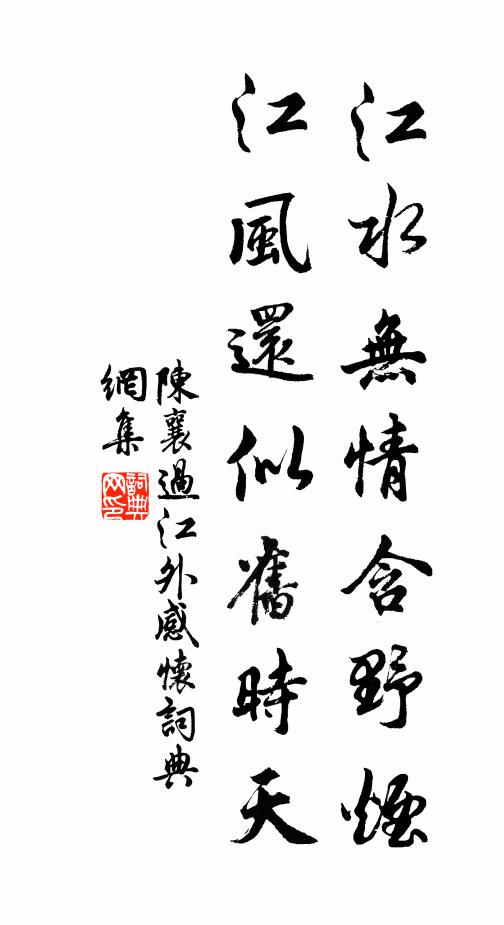 江水無情含野煙
江風還似舊時天
陳襄過江外感懷詞典
網集
詞典网印